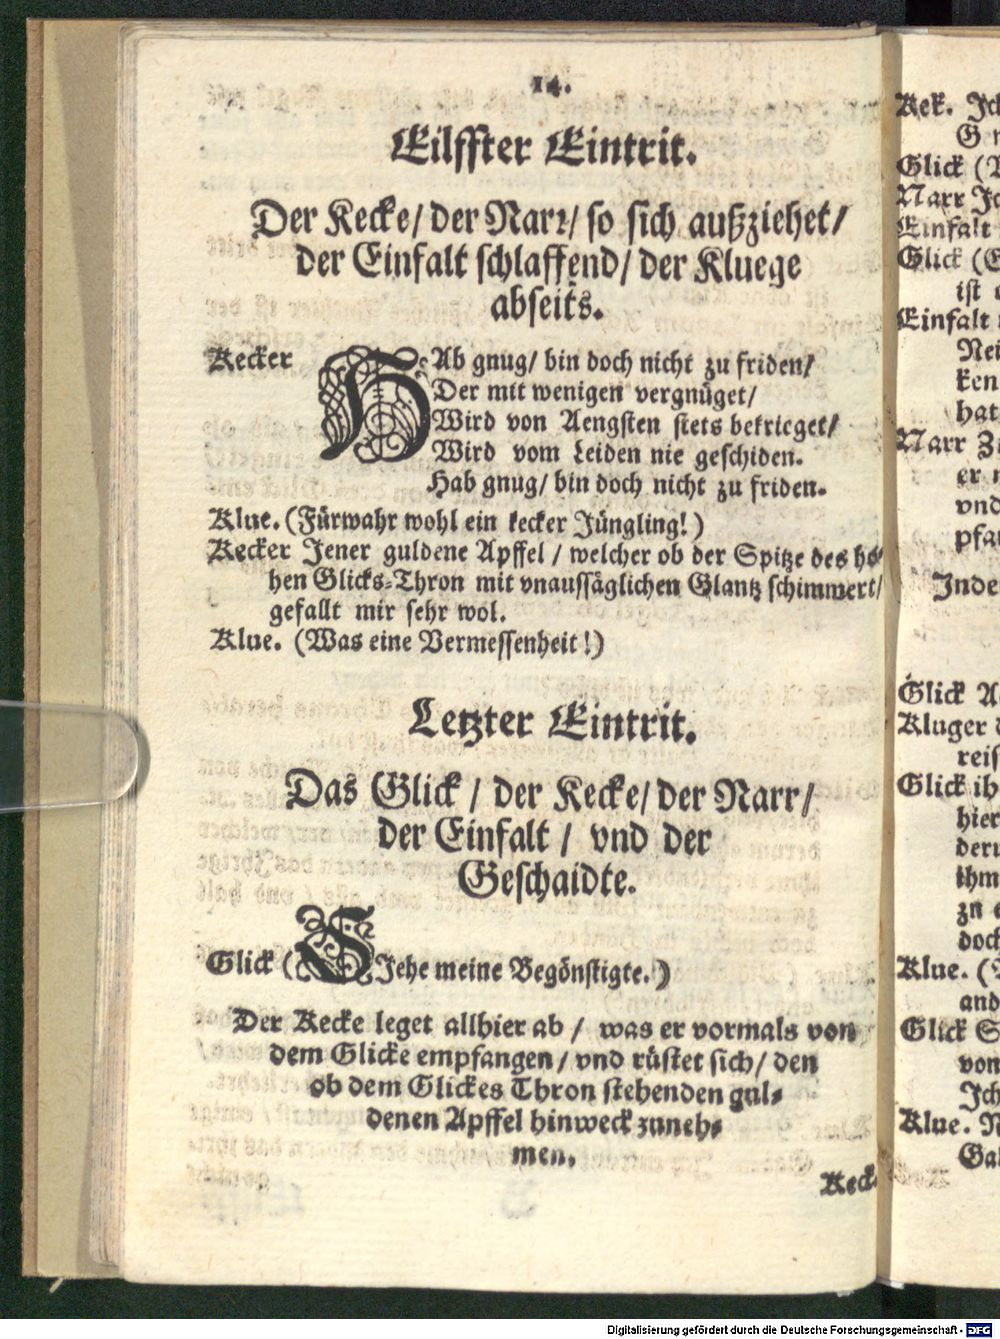 14.
Eilffter Eintrit.
Der Kecke/ der Narr/ so sich außziehet/
der Einfalt schlaffend/ der Kluege
abseits.
Kecker HAb gnug/ bin doch nicht zu friden/
Der mit wenigen vergnüget/
Wird von Aengsten stets bekrieget/
Wird vom Leiden nie geschiden.
Hab gnug/ bin doch nicht zu friden.
Klue. (Fürwahr wohl ein kecker Jüngling!)
Kecker Jener guldene Apffel / welcher ob der Spitze des ho-
hen Glicks-Thron mit vnaussäglichen Glantz schimmert/
gefallt mir sehr wol.
Klue. (Was eine Vermessenheit!)
Letzter Eintrit.
Das Glick / der Kecke/ der Narr/
der Einfalt / vnd der
Geschaidte.
Glick (SIehe meine Begönstigte.)
Der Kecke leget allhier ab / was er vormals von
dem Glicke empfangen / vnd rüstet sich/ den
ob dem Glickes Thron stehenden gul-
denen Apffel hinweck zuneh-
men.
Keck.
Kek. Ich
Glick (
Narr
Einfalt
Glick (
ist
Einfalt
Nei
ken
hat
Narr
er
vnd
pfa
Inde
Glick
Kluger
reis
Glick ih
hier
deru
ihm
zu
doch
Klue. (
and
Glick
von
Ich
Klue.
Ga
Digitalisierung gefördert durch die Deutsche Forschungsgemeinschaft - DFG